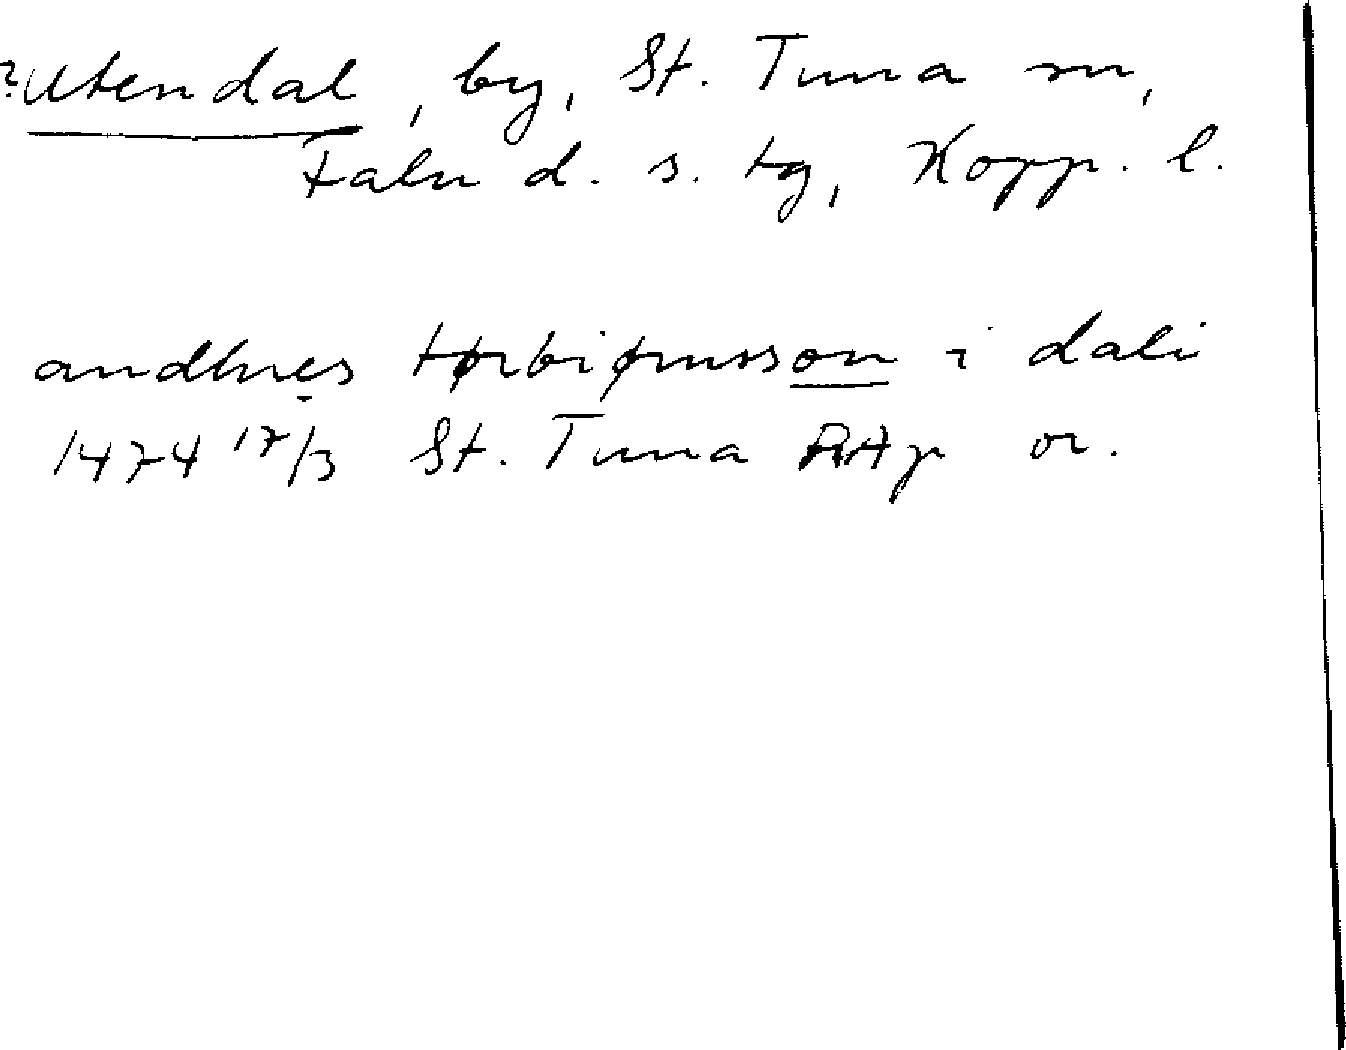 ?Utendal, by, St. Tuna sn,
Falu d. s. tg, Kopp. l.
andhres tørbiørnsson i dali
1474 17/3 St. Tuna RAp or.